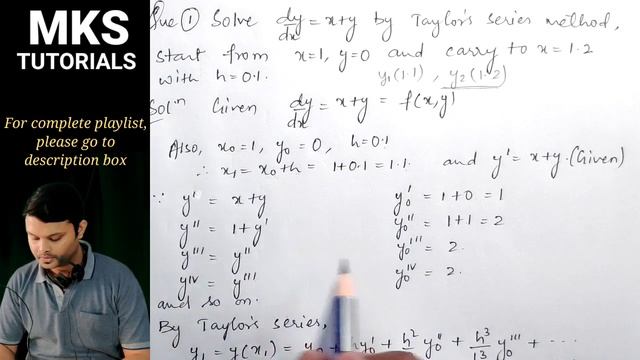 MKS
TUTORIALS
For complete playlist,
please go to
description box
Que ① Solve dy/dx = x+y by Taylor's series method,
start from x=1, y=0 and carry to x=1.2
with h=0.1. y₁(1.1), y₂(1.2)
Solⁿ Given dy/dx = x+y = f(x,y)
Also, x₀=1, y₀=0, h=0.1
∴ x₁ = x₀+h = 1+0.1 = 1.1 and y' = x+y (Given)
∵ y' = x+y y₀' = 1+0 = 1
y'' = 1+y' y₀'' = 1+1 = 2
y''' = y'' y₀''' = 2.
yⁱⱽ = y''' y₀ⁱⱽ = 2.
and so on.
By Taylor's series,
y₁ = y(x₁) = y₀ + hy₀' + h²/ y₀'' + h³/⌊3 y₀''' + ...